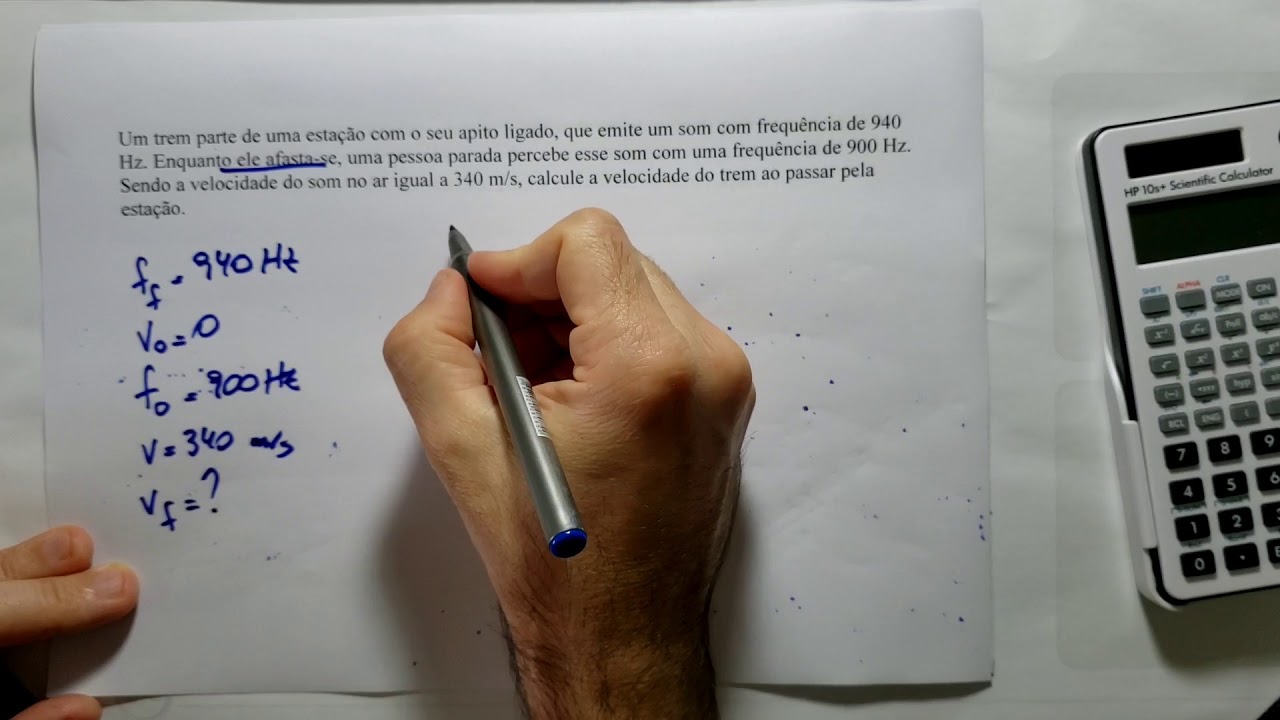 Um trem parte de uma estação com o seu apito ligado, que emite um som com frequência de 940
Hz. Enquanto ele afasta-se, uma pessoa parada percebe esse som com uma frequência de 900 Hz.
Sendo a velocidade do som no ar igual a 340 m/s, calcule a velocidade do trem ao passar pela
estação.
f_f = 940 Hz
v_o = 0
f_o = 900 Hz
v = 340 m/s
v_f = ?
HP 10s+ Scientific Calculator
SHIFT ALPHA CLR
MODE ON
hyp
RCL ENG (
7 8 9
4 5 6
1 2
0 •